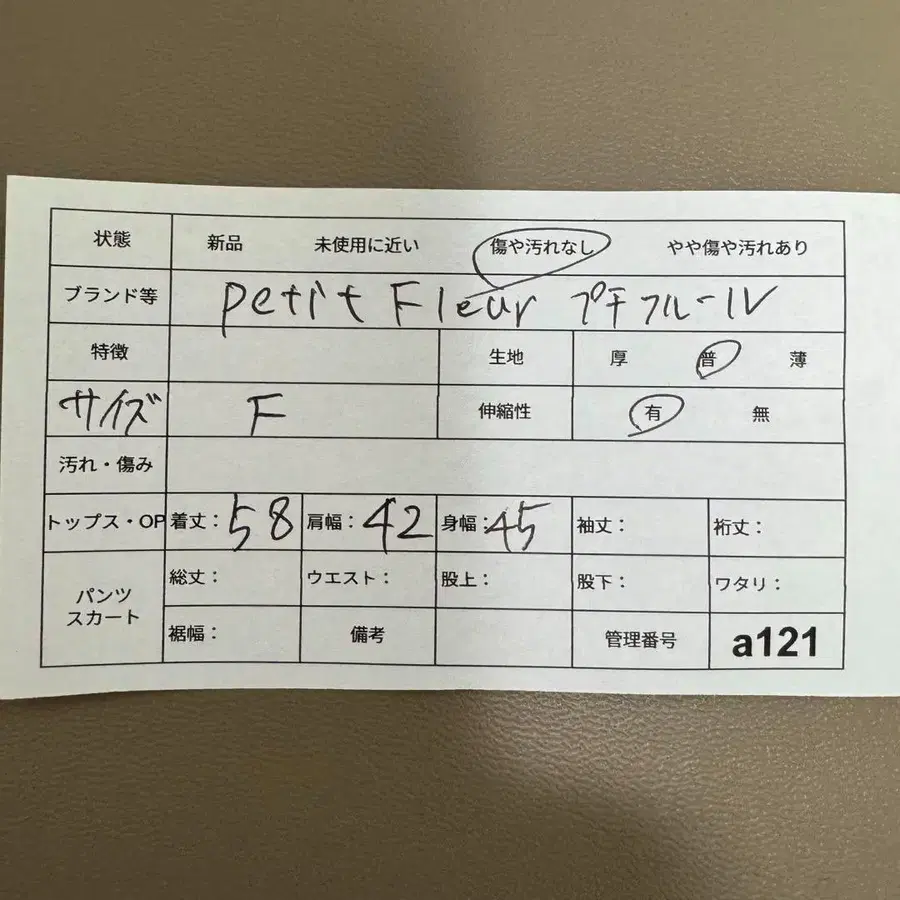 状態 新品 未使用に近い 傷や汚れなし やや傷や汚れあり
ブランド等 Petit Fleur プチフルール
特徴 生地 厚 普 薄
サイズ F 伸縮性 有 無
汚れ・傷み
トップス・OP 着丈：58 肩幅：42 身幅：45 袖丈： 裄丈：
パンツ
スカート
総丈： ウエスト： 股上： 股下： ワタリ：
裾幅： 備考 管理番号 a121